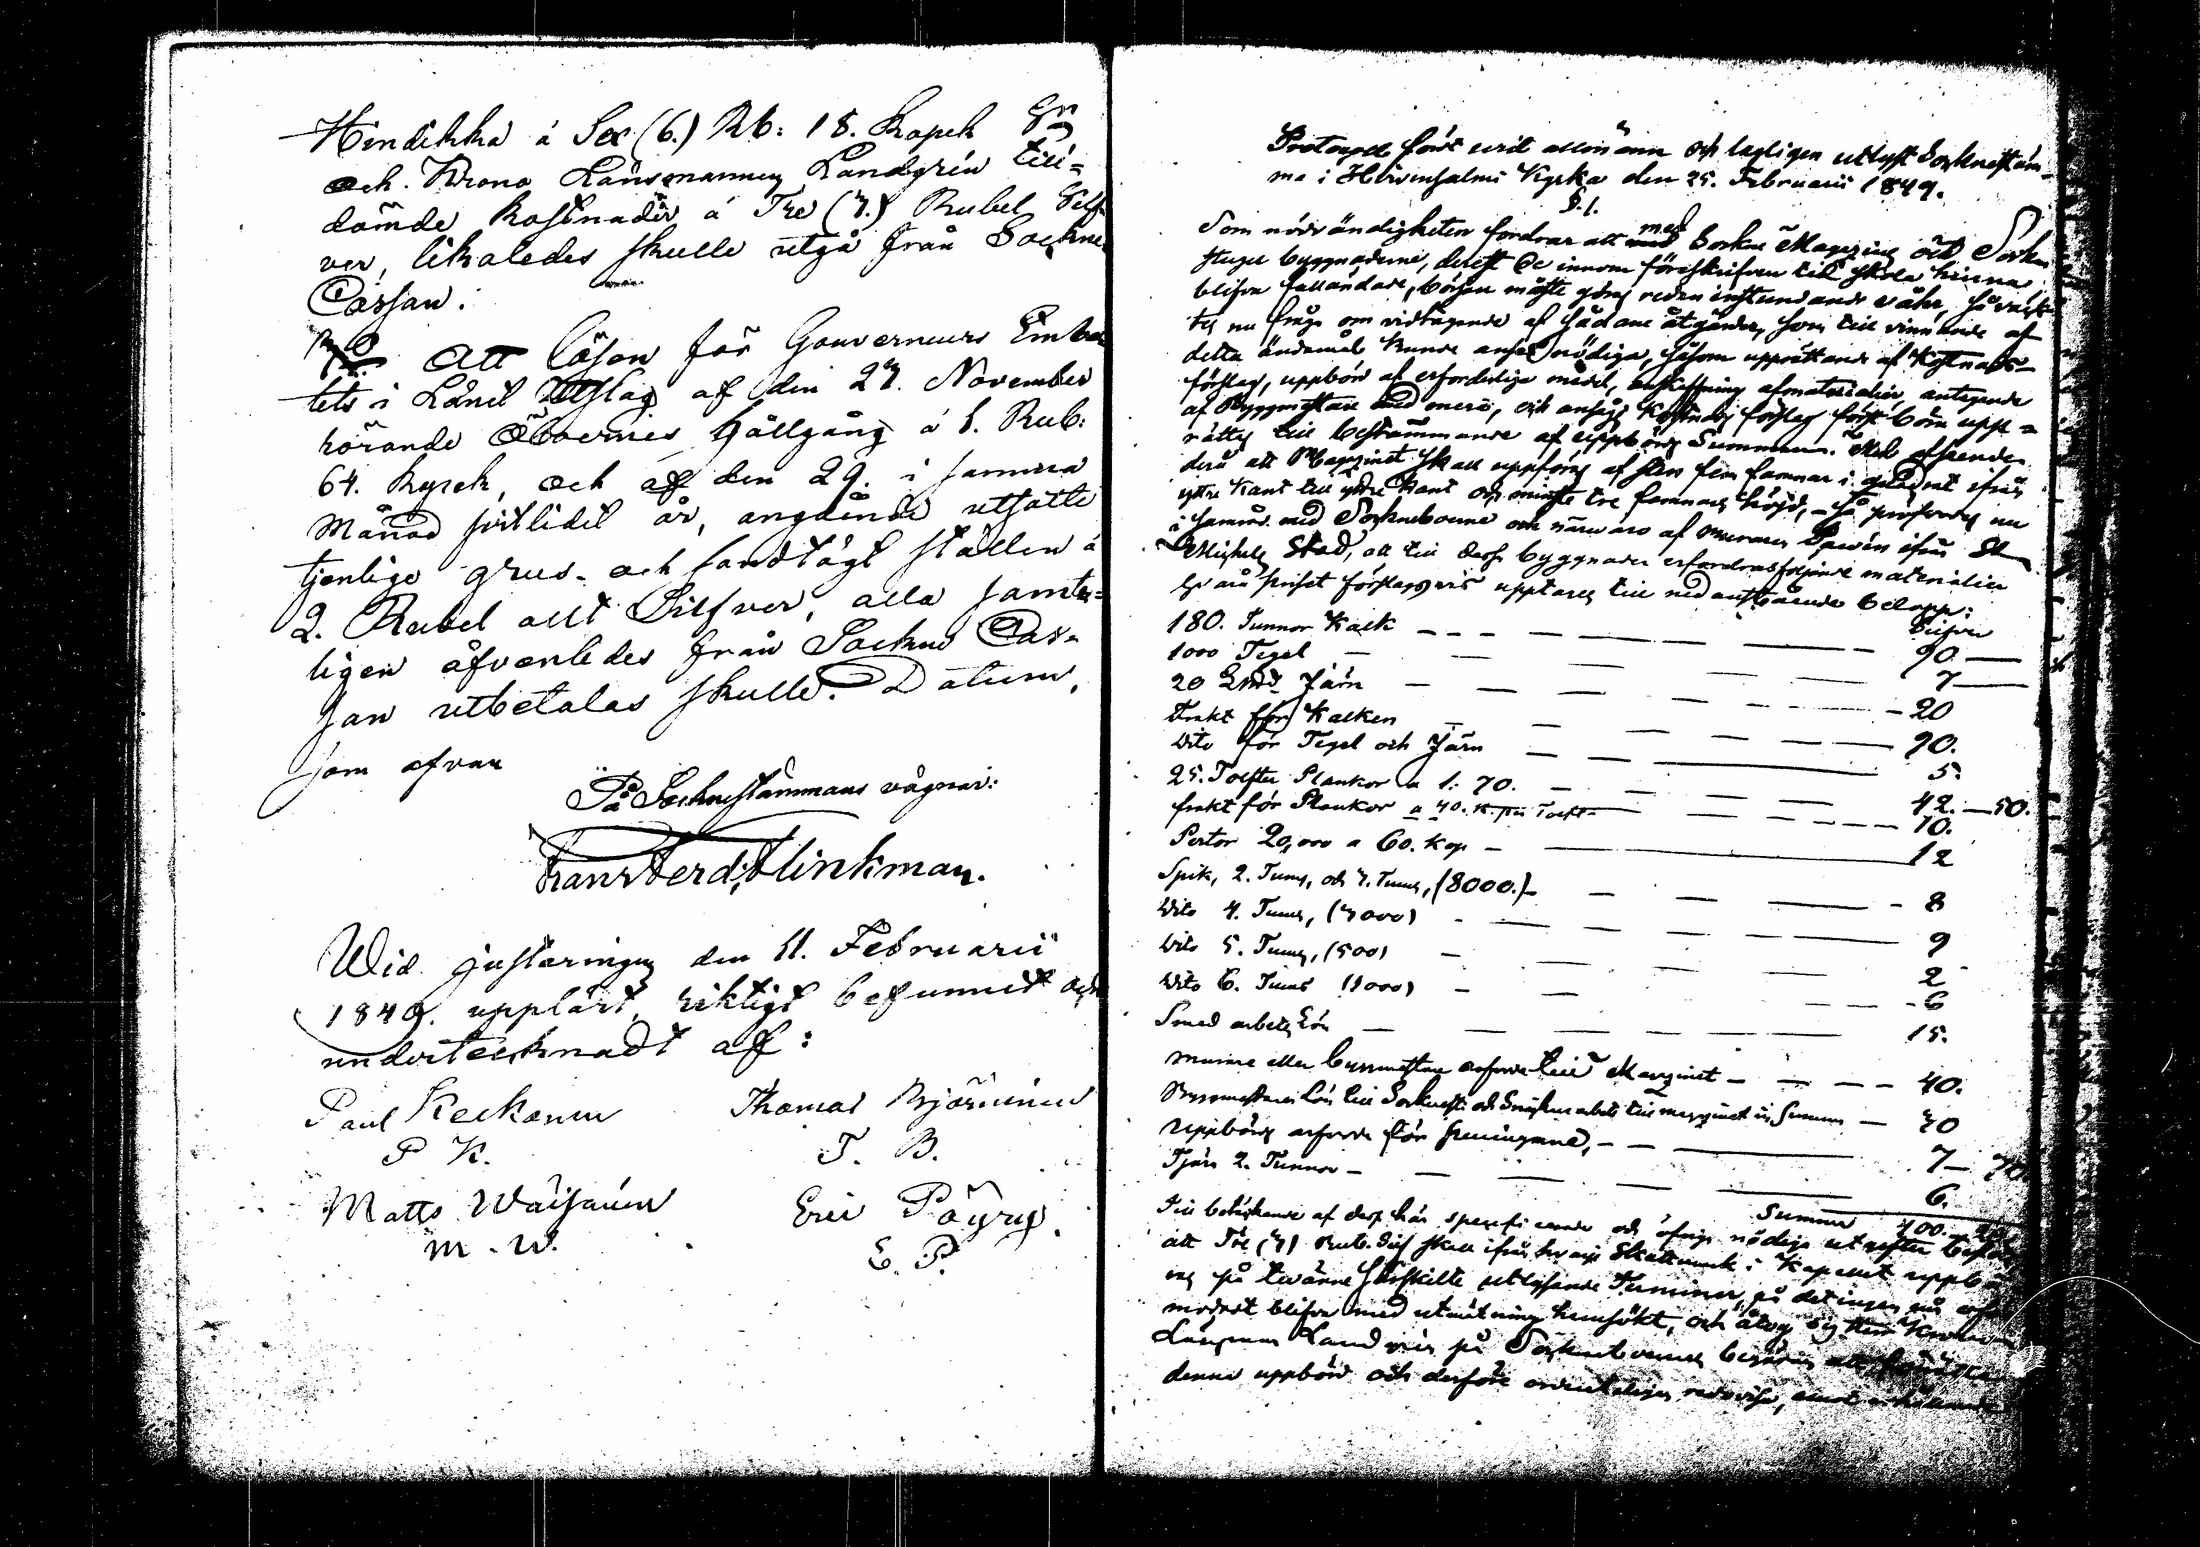 Hindikka á Sex (6.) Rb: 18. Kopek
och Krono Länsmannen Landgrén till=
dömde kostnader á Tre (3.) Rubel Silf=
ver, likaledes skulle utgå från Sockne
Cassan.
Att lösen för Gouverneurs Embe
tets i Länet Utslag af den 27. November
rörande Åboernes hållgång á 1. Rub:
64. Kopek, och af den 29. i Januarii
Månad sistlidet år, angående utsatte
tjenlige grus- och sandtägt ställen á
2. Rubel allt Silfver, alla samte=
ligen äfvenledes från Sockne Cas=
san utbetalas skulle. Datum,
som ofvan
På Socknestämmans vägnar:
Frans Ferd: Flinkman.
Wid justeringen den 11. Februarii
1849. uppläst, riktigt befunnit och
undertecknadt af:
Paul Keckonen Thomas Björninen
P K. T. B.
Matts Waisanen Eric Pöyry.
M. W. E. P.
Protocoll fördt wid allmänn och lagligen utlyst Sockneståm=
ma i Hirvensalmi Kyrka den 25. Februarii 1849.
§.1.
Som nödvändigheten fordrar att med Sockne Magazins och Sockne
stugu byggnaderne, derest de innom föreskrifven tid skola hinna
blifva fulländade, början måste göras redan instundande vår, så väck
tes nu fråga om vidtagande af sådane åtgärder, som till vinnande af
detta ändamål kunde anses nödiga, såsom upprättande af Kostnads=
förslag, uppbörd af erforderliga medel, anskaffning af materialier, antagande
af Byggmästare med mera, och ansågs Kostnads förslag först böra upp=
rättas till bestämmande af uppbörds Summan. Med afseende
derå att Magazinet skall uppföras af sten fem famnar i quadrat ifrån
yttre kant till yttre kant och minst tre famnars höjd, - så pröfvades nu
i samråd med Sockneboerne och närvaro af muraren ifrån St
Michels Stad, att till dessa byggnader erfordras följande materialier
hvars priset förslagsvis upptages till nedanstående belopp:
Silfver
180. Tunnor Kalk - - - 90 -
1000 Tegel - - - 7 -
20 Lmd Järn - - - 20
Frakt för Kalken - - - 90.
Dito för Tegel och Järn - - - 5.
25. Tolfter Plankor a 1: 70. - - - 42. - 50.
frakt för Plankor a 40. K. per Tolft - - - 10.
Pertor 20,000 a 60. Kop - - - 12
Spik, 2. Tums, och 3. Tums, (8000.) - - - 8
Dito 4. Tums, (3000) - - - 9
Dito 5. Tums, (500) - - - 2
Dito 6. Tums (1000) - - - 6
Smed arbets Lön - - - 15.
Murare eller byggmästare arfvode till Magazinet - - - 40.
Byggmästarens Lön till Socknest: och Snickare arbete till magazinet in Summa - 30
Uppbörds arfvode för penningarne, - - - 7 - 70
Tjära 2. Tunnor - - - 6.
Summa 400. 20.
Till bestridande af dess här specificerade och öfrige nödige utgifter beslöts
att Tre (3) Rub. Silf skall ifrån hvarje Skattemark i Kapellet uppbär
as på tvänne särskilte utlysande Terminer, på det ingen må
modest blifva med utmätning hemsökt, och åtog sig herr Krono
Länsman Landgrén på Sockneboernes begäran att
denna uppbörd och derföre ordenteligen redovisa, emot